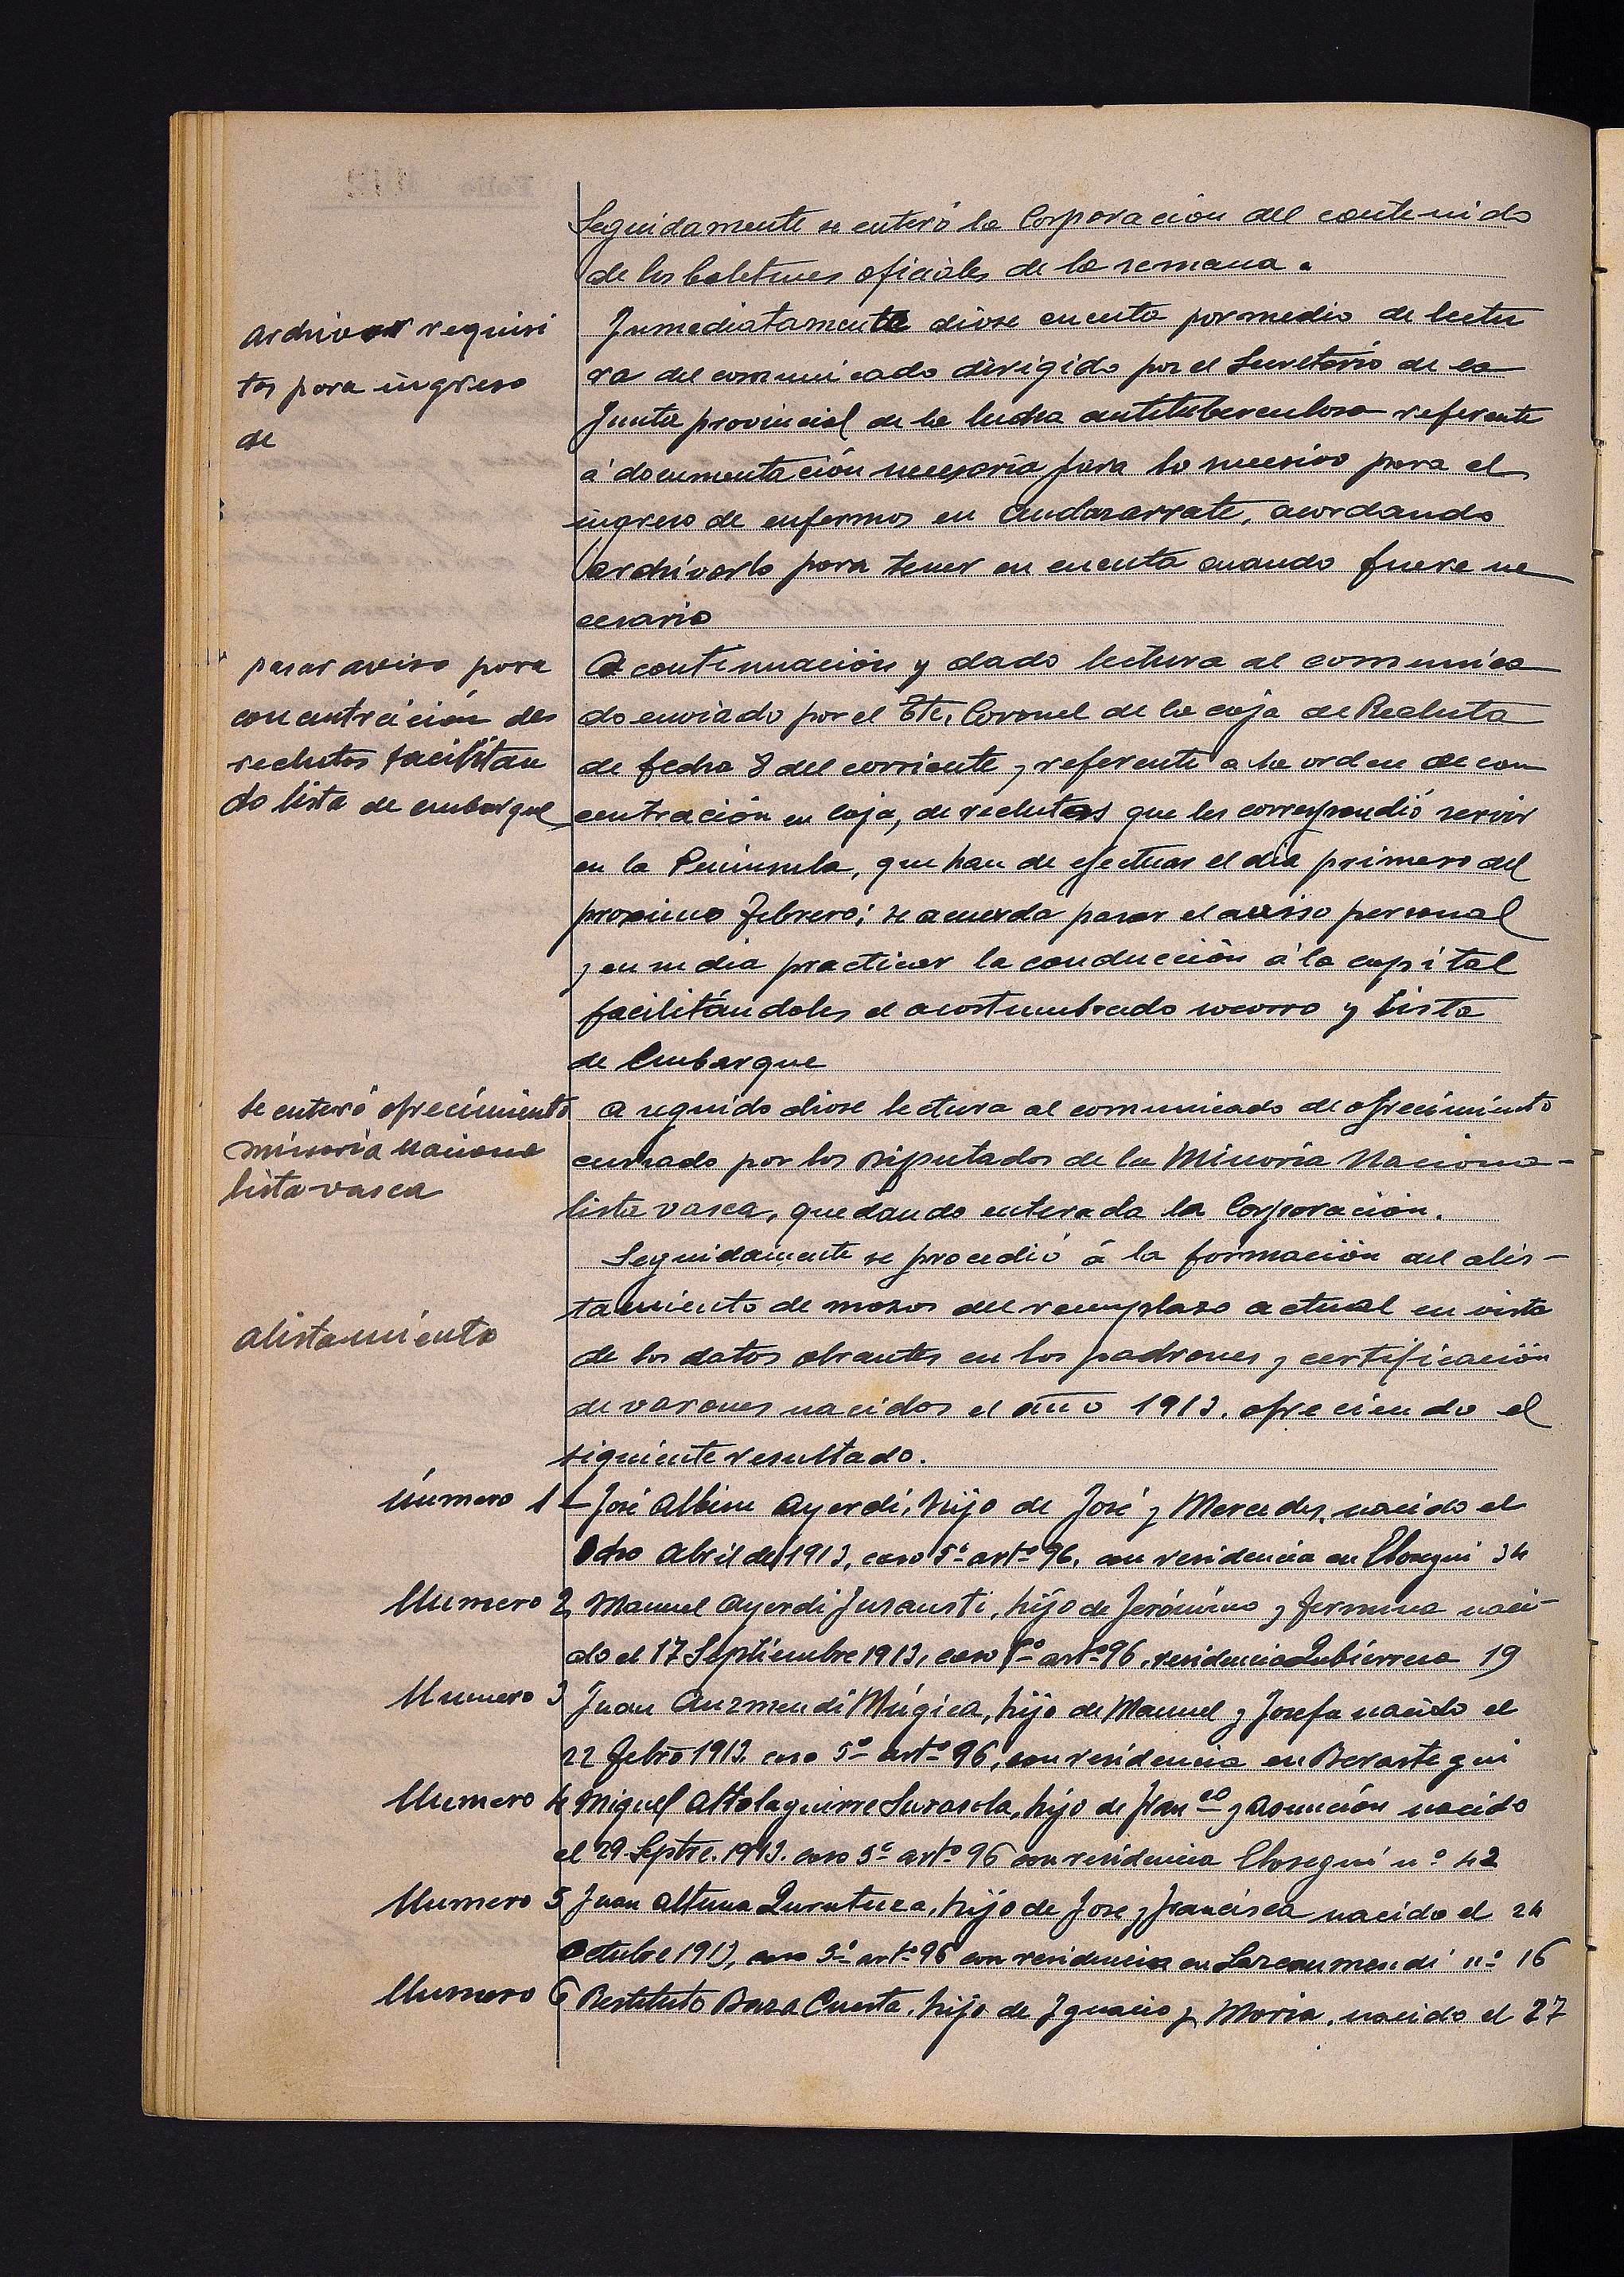 Seguidamente se enteró la Corporación del contenido
de los boletines oficiales de la semana.
archivar requisi
tos para ingreso
de
Inmediatamente diose cuenta por medio de lectu
ra del comunicado dirigido por el Secretario de la
Junta provincial de la lucha antituberculosa referente
á documentación necesaria para lo sucesivo para el
ingreso de enfermos en Andazarrate, acordando
archivarlo para tener en cuenta cuando fuere ne
cesario
pasar aviso para
concentrición de
reclutas facilitan
do lista de embarque
A continuación y dado lectura al comunica
do enviado por el Tte. Coronel de la caja de Recluta
de fecha 8 del corriente y referente a la orden de con
centración en Caja, de reclutas que les correspondió servir
en la Peninsula, que han de efectuar el dia primero del
proximo febrero; se acuerda pasar el aviso personal
y en su dia practicar la conducción á la capital
facilitándoles el acostumbrado socorro y Lista
de Embarque
se enteró ofrecimiento
minoria naciona
lista vasca
A seguido diose lectura al comunicado de ofrecimiento
cursado por los Diputados de la Minoria Naciona-
lista vasca, quedando enterada la Corporación.
alistamiento
Seguidamente se procedió á la formación del alis-
tamiento de mozos del reemplazo actual en vista
de los datos obrantes en los padrones y certificación
de varones nacidos el año 1913. ofreciendo el
siguiente resultado.
Número 1 - José Albisu Ayerdi, hijo de José y Mercedes, nacido el
Ocho Abril de 1913, caso 5º artº 96, con residencia en Elosegui 34
Numero 2 Manuel Ayerdi Jusausti, hijo de Jerónimo y fermina naci-
do el 17 Septiembre 1913, caso artº 96, residencia Zubierreca 19
Numero 3 Juan Auzmendi Múgica, hijo de Manuel y Josefa nacido el
22 febrº 1913. caso 5º artº 96, con residencia en Berastegui
Numero 4 Miguel Attolaguirre Sarasola, hijo de Franco y Asunción nacido
el 29 Septre. 1913. caso 5º artº 96 con residencia Elosegui nº 42
Numero 5 Juan Altuna Zurutuza, hijo de Jose y francisca nacido el 24
Octubre 1913, caso 5º artº 96 con residencia en Lazcaumendi nº 16
Numero 6 Restituto Baza Cuesta, hijo de Ignacio y Maria, nacido el 27